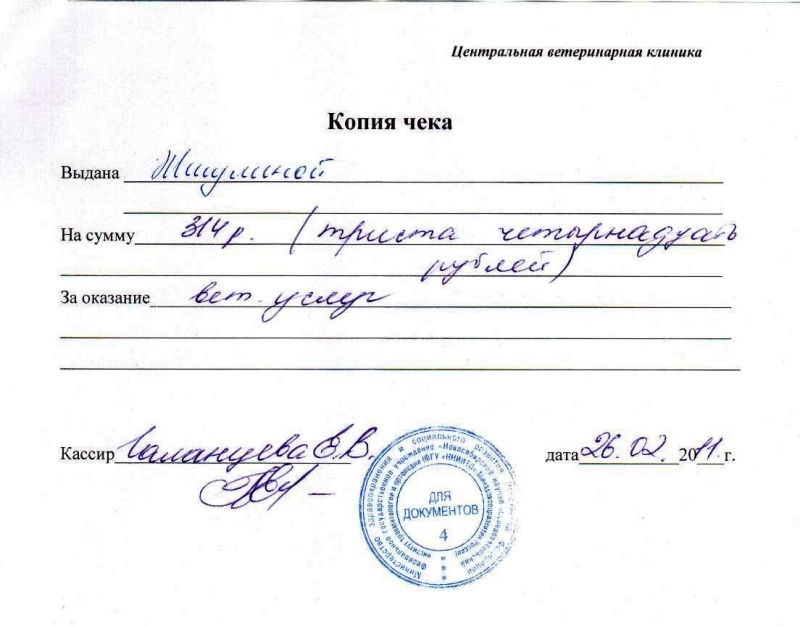 Центральная ветеринарная клиника
Копия чека
Выдана
На сумму 314 р. (триста четырнадцать
рублей)
За оказание вет. услуг
Кассир Е.В. дата 26.02. 2011 г.
Министерство здравоохранения и социального развития
Федеральное государственное учреждение «Новосибирский научно-исследовательский
институт травматологии и ортопедии (ФГУ «ННИИТО»
ДЛЯ
ДОКУМЕНТОВ
4